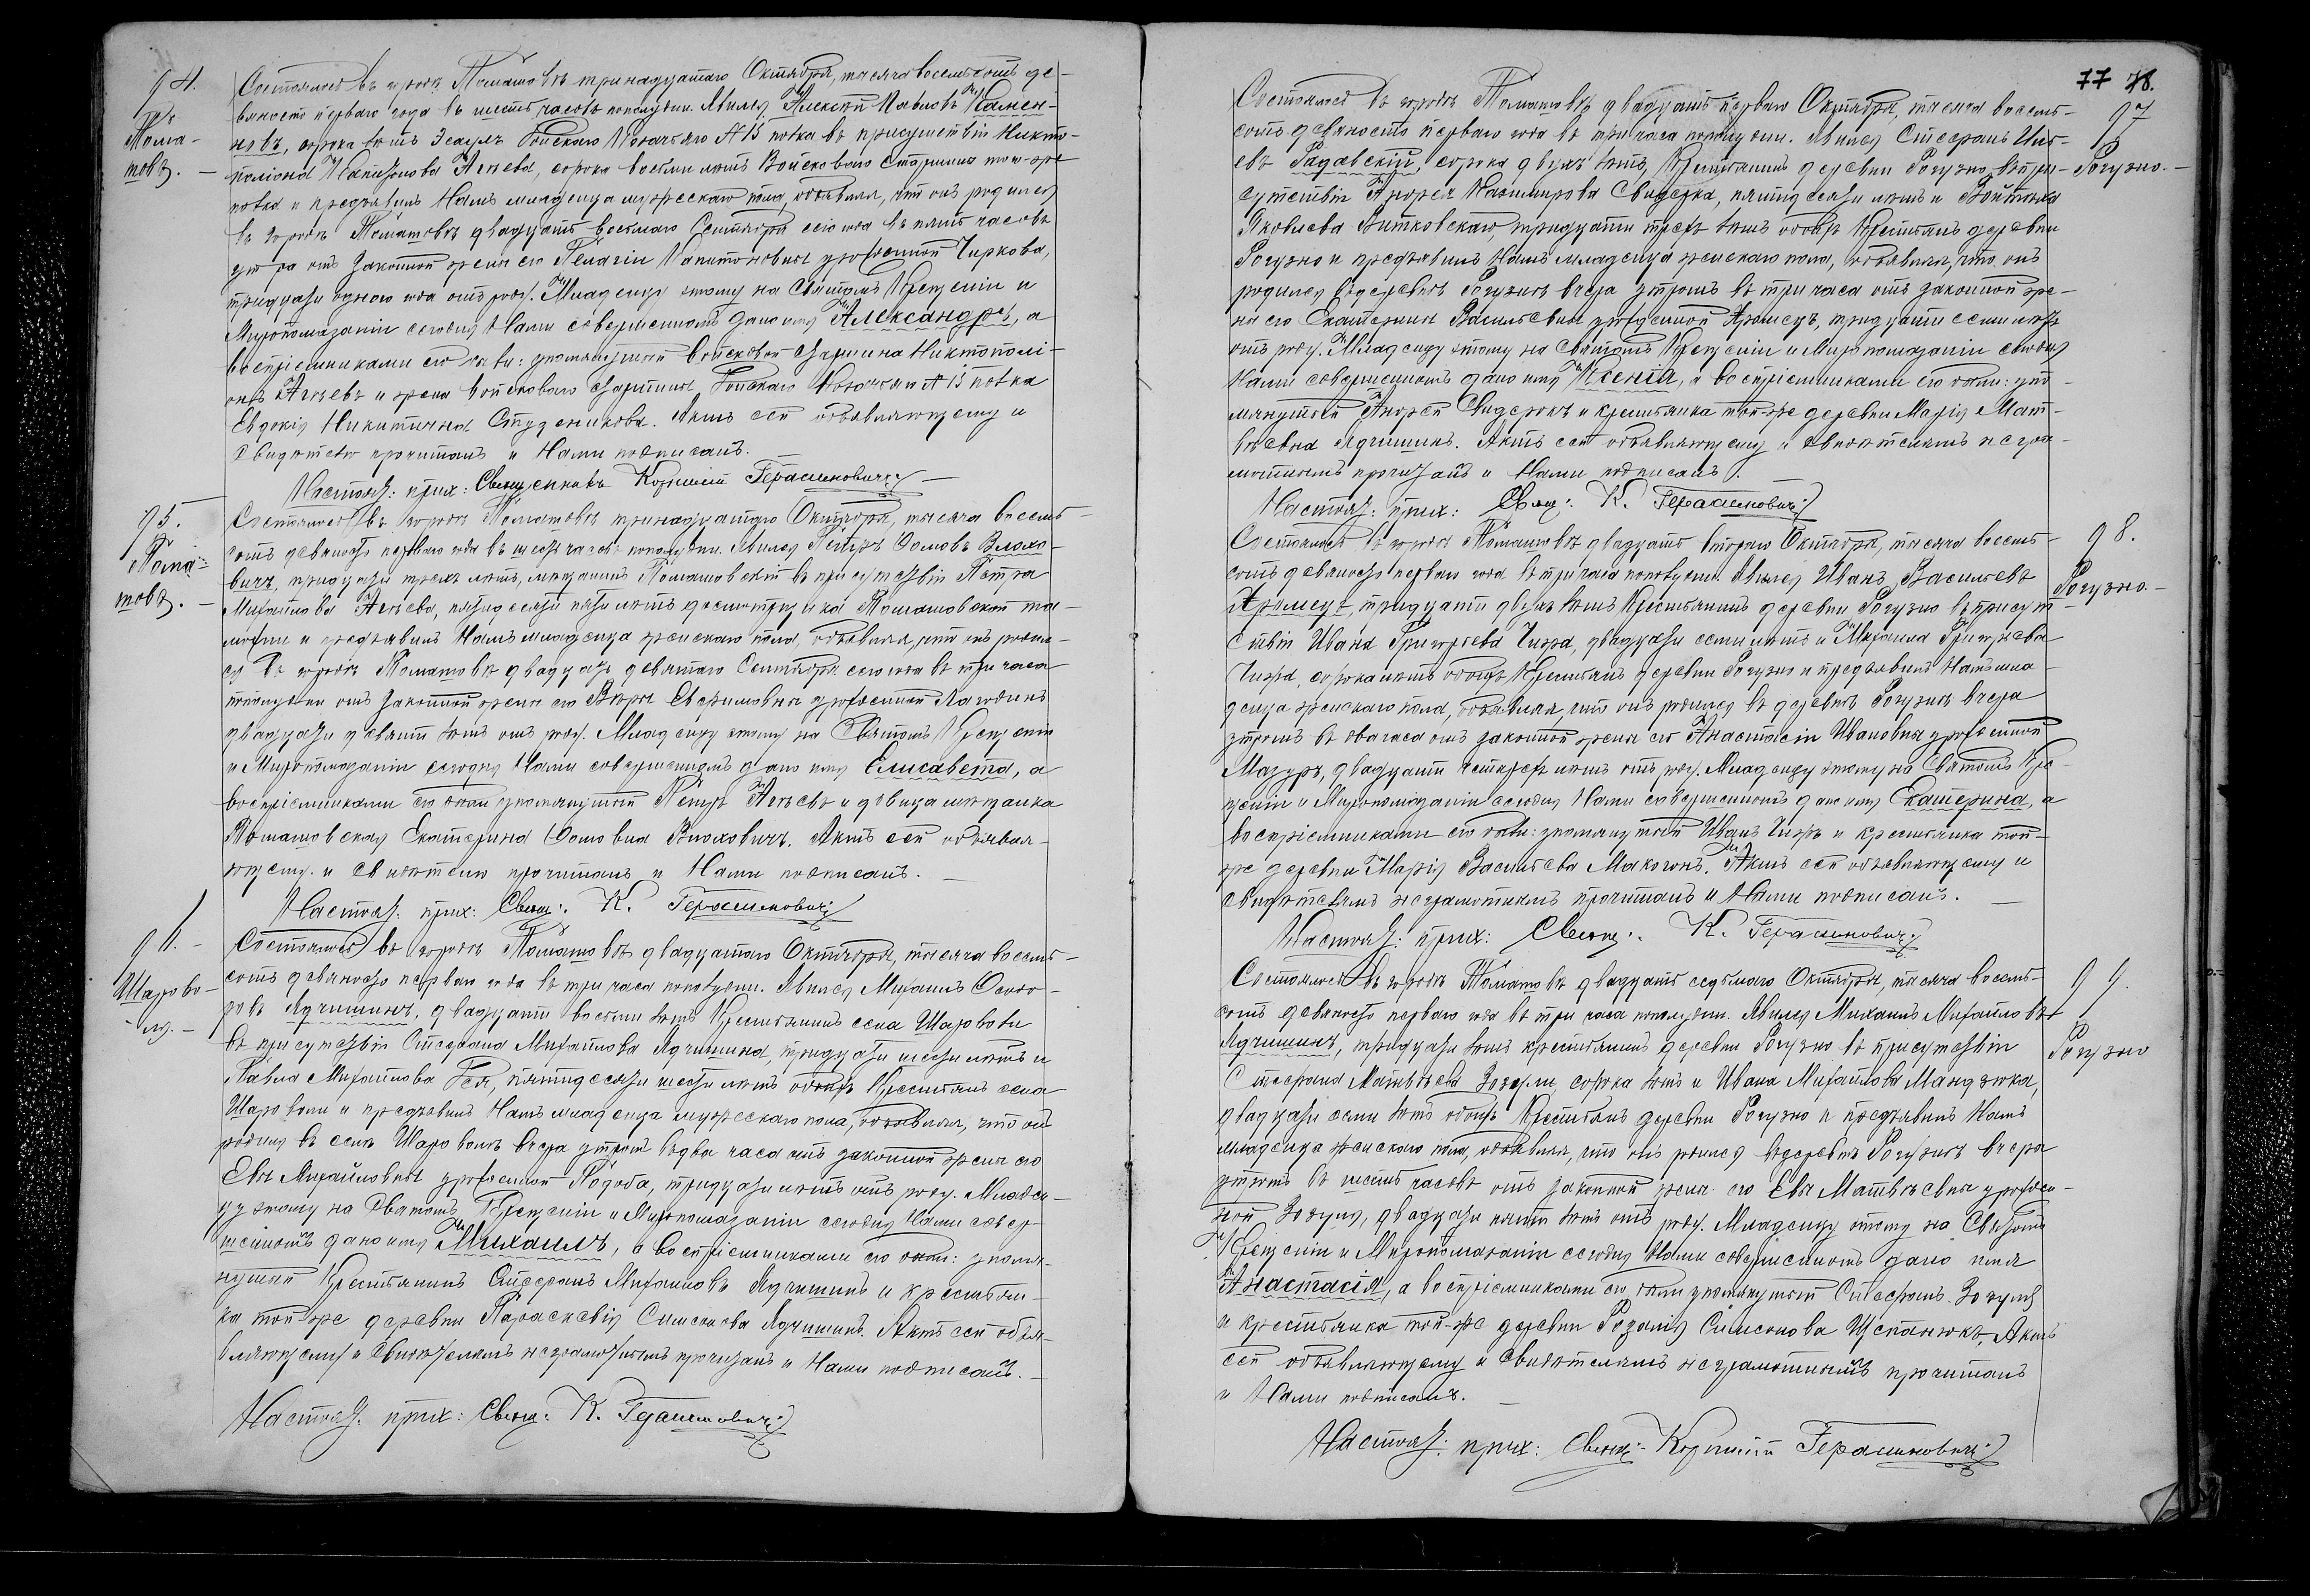 94.
Тома-
шовъ. —
Состоялось въ городѣ Томашовѣ тринадцатаго Октября, тысяча восемьсотъ де-
вяносто перваго года въ шесть часовъ пополудни. Явился Алексѣй Павловъ Камен-
новъ, сорока лѣтъ Эсаулъ Донскаго Козачьяго №15 полка въ присутствіи Никто-
поліона Капитонова Агѣева, сорока восьми лѣтъ Войсковаго Старшины того-же
полка и предъявилъ Намъ младенца мужескаго пола, объявляя, что онъ родился
въ городѣ Томашовѣ двадцать восьмаго Сентября сего года въ пять часовъ
утра отъ законной жены его Пелагіи Капитоновны урожденной Чиркова,
тридцати одного года отъ роду. Младенцу этому на Святомъ Крещеніи и
Муропомазаніи сегодня Нами совершенномъ дано имя Александръ, а
воспріемниками его были: упомянутый войсковой старшина Никтополі-
онъ Агѣевъ и жена войсковаго старшины Донскаго Козачьяго №15 полка
Евдокія Никитична Студеникова. Актъ сей объявляющему и
свидѣтелю прочитанъ и Нами подписанъ.
Настоят: прих: Священникъ Корнилій Герасимовичъ
95.
Тома-
шовъ. —
Состоялось въ городѣ Томашовѣ тринадцатаго Октября, тысяча восемь-
сотъ девяносто перваго года въ шесть часовъ пополудни. Явился Петръ Ѳомовъ Влохо-
вичъ, тридцати трехъ лѣтъ, мѣщанинъ Томашовскій въ присутствіи Петра
Михайлова Агѣева, пятидесяти пяти лѣтъ досмотрщика Томашовской та-
можни и предъявилъ Намъ младенца женскаго пола, объявляя, что онъ родил-
ся въ городѣ Томашовѣ двадцать девятаго Сентября сего года въ три часа
пополудни отъ законной жены его Вѣры Ефримовны урожденной Лагодинъ
двадцати девяти лѣтъ отъ роду. Младенцу этому на Святомъ Крещеніи
и Муропомазаніи сегодня Нами совершенномъ дано имя Елисавета, а
воспріемниками его были упомянутый Петръ Агѣевъ и дѣвица мѣщанка
Томашовская Екатерина Ѳомовна Влоховичъ. Актъ сей объявля-
ющему и свидѣтелю прочитанъ и Нами подписанъ. —
Настоят: прих: Свящ: К. Герасимовичъ
96. —
Шарово-
ля. —
Состоялось въ городѣ Томашовѣ двадцатаго Октября, тысяча восемь-
сотъ девяносто перваго года въ три часа пополудни. Явился Михаилъ Ѳеодо-
ровъ Ядчишинъ, двадцати восьми лѣтъ Крестьянинъ села Шароволи
въ присутствіи Стефана Михайлова Ядчишина, тридцати шести лѣтъ и
Павла Михайлова Гея, пятидесяти шести лѣтъ обоихъ Крестьянъ села
Шароволи и предъявилъ Намъ младенца мужескаго пола, объявляя, что онъ
родился въ селѣ Шароволѣ вчера утромъ въ два часа отъ законной жены его
Евы Михайловны урожденной Подоба, тридцати лѣтъ отъ роду. Младен-
цу этому на Святомъ Крещеніи и Муропомазаніи сегодня Нами совер-
шенномъ дано имя Михаилъ, а воспріемниками его были: упомя-
нутый Крестьянинъ Стефанъ Михайловъ Ядчишинъ и крестьян-
ка той-же деревни Параскевія Симеонова Ядчишинъ. Актъ сей объя-
вляющему и свидѣтелямъ неграмотнымъ прочитанъ и Нами подписанъ. —
Настоят: прих: Свящ: К. Герасимовичъ
77 78.
97
Рогузно. —
Состоялось въ городѣ Томашовѣ двадцать перваго Октября, тысяча восемь-
сотъ девяносто перваго года въ три часа пополудни. Явился Стефанъ
евъ Радавскій, сорока двухъ лѣтъ, Крестьянинъ деревни Рогузно въ при-
сутствіи Андрея Казимирова Свидерка, пятидесяти лѣтъ и Войтѣха
Яковлева Витковскаго, тридцати трехъ лѣтъ обоихъ Крестьянъ деревни
Рогузно и предъявилъ Намъ младенца женскаго пола, объявляя, что онъ
родился въ деревнѣ Рогузнѣ вчера утромъ въ три часа отъ законной же-
ны его Екатерины Васильевны урожденной Яремецъ, тридцати семи лѣтъ
отъ роду. Младенцу этому на Святомъ Крещеніи и Муропомазаніи сегодня
Нами совершенномъ дано имя Ксенія, а воспріемниками его были: упо-
мянутый Андрей Свидерокъ и крестьянка той-же деревни Марія Мат-
вѣевна Ядчишинъ. Актъ сей объявляющему и свидѣтелямъ неграм-
отнымъ прочитанъ и Нами подписанъ.
Настоят: прих: Свящ: К. Герасимовичъ
98.
Рогузно. —
Состоялось въ городѣ Томашовѣ двадцать втораго Октября, тысяча восемь-
сотъ девяносто перваго года въ три часа пополудни. Явился Иванъ Васильевъ
Яремецъ, тридцати двухъ лѣтъ Крестьянинъ деревни Рогузно въ присут-
ствіи Ивана Григорьева Чижа, двадцати семи лѣтъ и Михаила Григорьева
Чижа, сорока лѣтъ обоихъ Крестьянъ деревни Рогузно и предъявилъ Намъ мла-
денца женскаго пола, объявляя, что онъ родился въ деревнѣ Рогузнѣ вчера
утромъ въ два часа отъ законной жены его Анастасіи Ивановны урожденной
Мазуръ, двадцати четырехъ лѣтъ отъ роду. Младенцу этому на Святомъ Кре-
щеніи и Муропомазаніи сегодня Нами совершенномъ дано имя Екатерина, а
воспріемниками его были: упомянутый Иванъ Чижъ и крестьянка той-
же деревни Марія Васильева Макогонъ. Актъ сей объявляющему и
свидѣтелямъ неграмотнымъ прочитанъ и Нами подписанъ. —
Настоят: прих: Свящ: К. Герасимовичъ
99.
Рогузно
Состоялось въ городѣ Томашовѣ двадцать седьмаго Октября, тысяча восемь-
сотъ девяносто перваго года въ три часа пополудни. Явился Михаилъ Михайловъ
Ядчишинъ, тридцати лѣтъ крестьянинъ деревни Рогузно въ присутствіи
Стефана Матвѣева Зозули, сорока лѣтъ и Ивана Михайлова Мандзюка,
двадцати семи лѣтъ обоихъ Крестьянъ деревни Рогузно и предъявилъ Намъ
младенца женскаго пола, объявляя, что онъ родился въ деревнѣ Рогузнѣ вчера
утромъ въ шесть часовъ отъ законной жены его Евы Матвѣевны урожден-
ной Зозуля, двадцати пяти лѣтъ отъ роду. Младенцу этому на Святомъ
Крещеніи и Муропомазаніи сегодня Нами совершенномъ дано имя
Анастасія, а воспріемниками его были упомянутый Стефанъ Зозуля
и крестьянка той-же деревни Розалія Симеонова Щепанюкъ. Актъ
сей объявляющему и свидѣтелямъ неграмотнымъ прочитанъ
и Нами подписанъ. —
Настоят: прих: Свящ: Корнилій Герасимовичъ